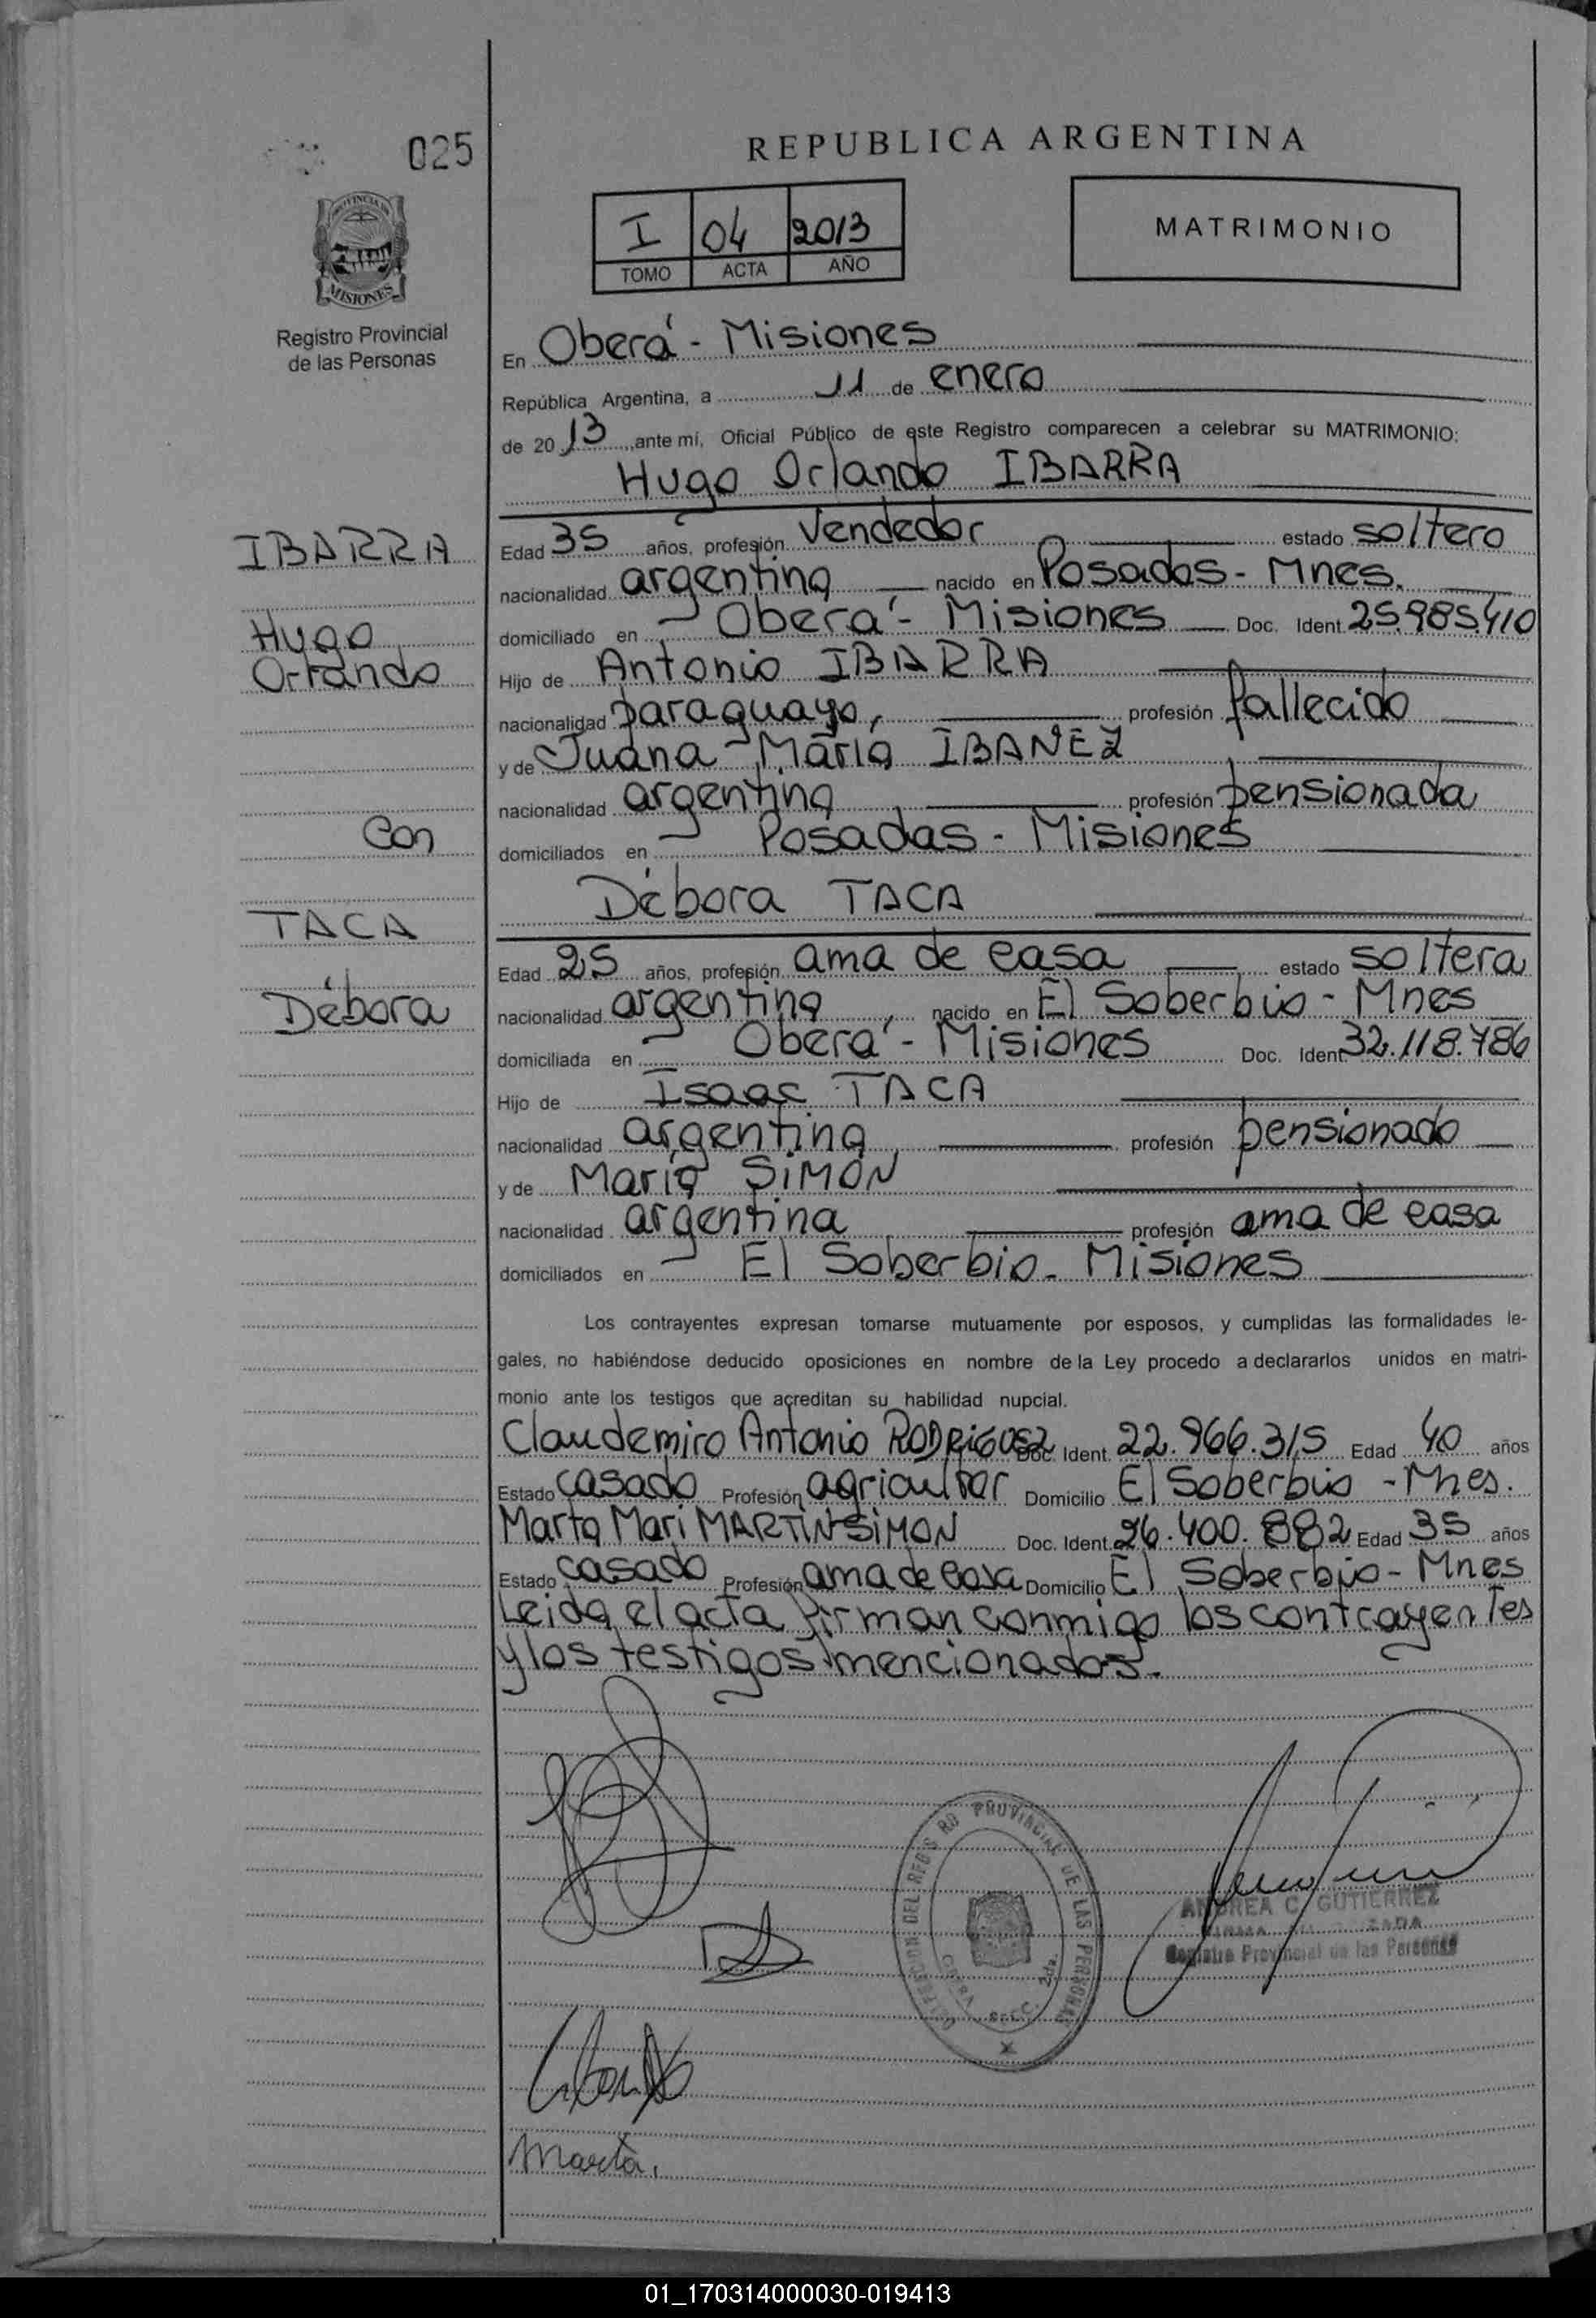 025
REPUBLICA ARGENTINA
I 04 2013
TOMO ACTA AÑO
MATRIMONIO
PROVINCIA DE
MISIONES
Registro Provincial
de las Personas
En Oberá - Misiones
República Argentina, a 11 de enero
de 20 13, ante mí, Oficial Público de este Registro comparecen a celebrar su MATRIMONIO:
Hugo Orlando IBARRA
IBARRA
Hugo
Orlando
Con
TACA
Débora
Edad 35 años, profesión Vendedor estado soltero
nacionalidad argentina nacido en Posadas - Mnes.
domiciliado en Oberá - Misiones Doc. Ident. 25.985.410
Hijo de Antonio IBARRA
nacionalidad paraguayo, profesión fallecido
y de Juana María IBAÑEZ
nacionalidad argentina, profesión pensionada
domiciliados en Posadas - Misiones
Débora TACA
Edad 25 años, profesión ama de casa estado soltera
nacionalidad argentina, nacido en El Soberbio - Mnes
domiciliada en Oberá - Misiones Doc. Ident 32.118.786
Hijo de Isaac TACA
nacionalidad argentina, profesión pensionado
y de María SiMÓN
nacionalidad argentina profesión ama de casa
domiciliados en El Soberbio - Misiones
Los contrayentes expresan tomarse mutuamente por esposos, y cumplidas las formalidades le-
gales, no habiéndose deducido oposiciones en nombre de la Ley procedo a declararlos unidos en matri-
monio ante los testigos que acreditan su habilidad nupcial.
Claudemiro Antonio RODRiGUEZ Doc. Ident. 22.966.315 Edad 40 años
Estado casado Profesión agricultor Domicilio El Soberbio - Mnes.
Marta Mari MARTINSiMON Doc. Ident. 26.400.882 Edad 35 años
Estado casado Profesión ama de casa Domicilio El Soberbio - Mnes
Leida el acta firman conmigo los contrayentes
y los testigos mencionados.
PROVINCIAL DE LAS PERSONAS
ANDREA C. GUTIERREZ
Registro Provincial de las Personas
Marta.
01_170314000030-019413